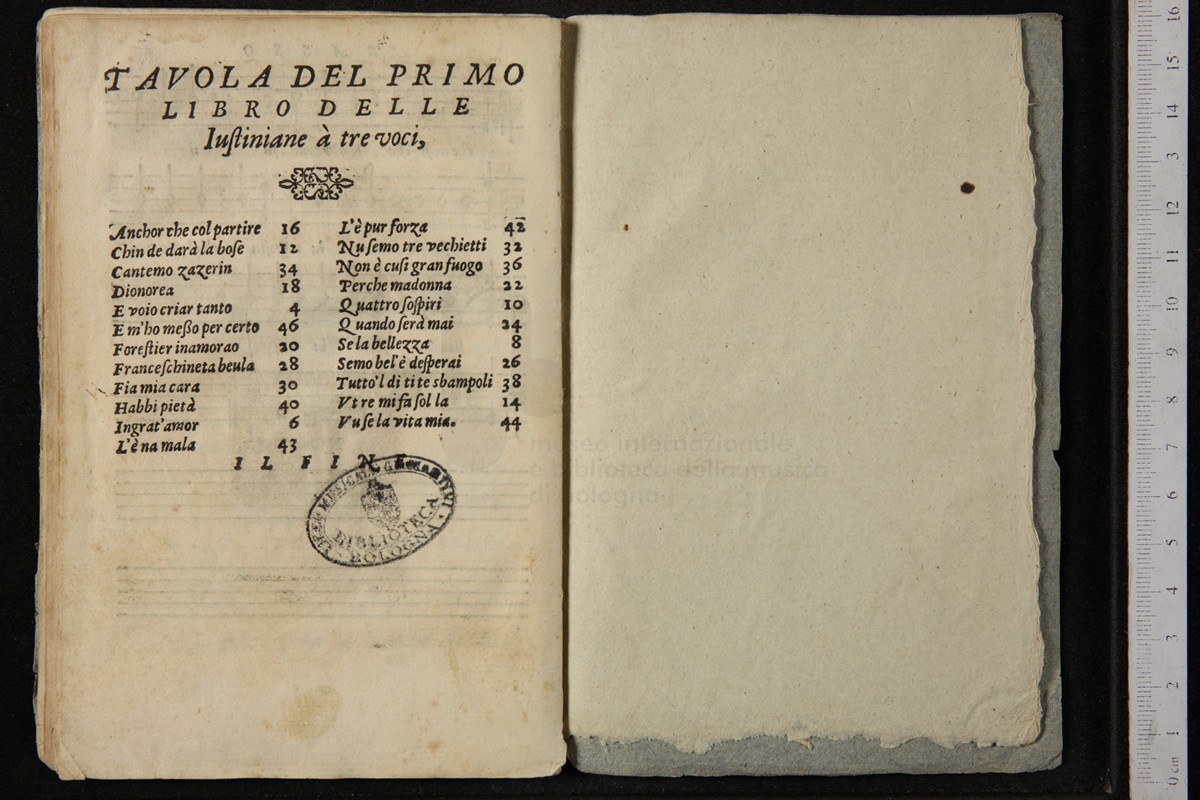 TAVOLA DEL PRIMO
LIBRO DELLE
Iuſtiniane à tre voci,
Anchor che col partire 16
Chin de darà la boſe 12
Cantemo zazerin 34
Dionorea 18
E voio criar tanto 4
E m'ho meßo per certo 46
Foreſtier inamorao 20
Franceſchineta beula 28
Fia mia cara 30
Habbi pietà 40
Ingrat'amor 6
L'è na mala 43
L'è pur forza 42
Nu ſemo tre vechietti 32
Non è cuſi gran fuogo 36
Perche madonna 22
Quattro ſoſpiri 10
Quando ſerà mai 24
Se la bellezza 8
Semo bel'è deſperai 26
Tutto'l di ti te sbampoli 38
Vt re mi fa ſol la 14
Vu ſe la vita mia. 44
IL FINE
LICEO MUSICALE
BIBLIOTECA
BOLOGNA
museo internazionale
e biblioteca della musica
di bologna
16
15
14
3
12
11
10
9
8
7
6
5
4
3
2
1
0 cm